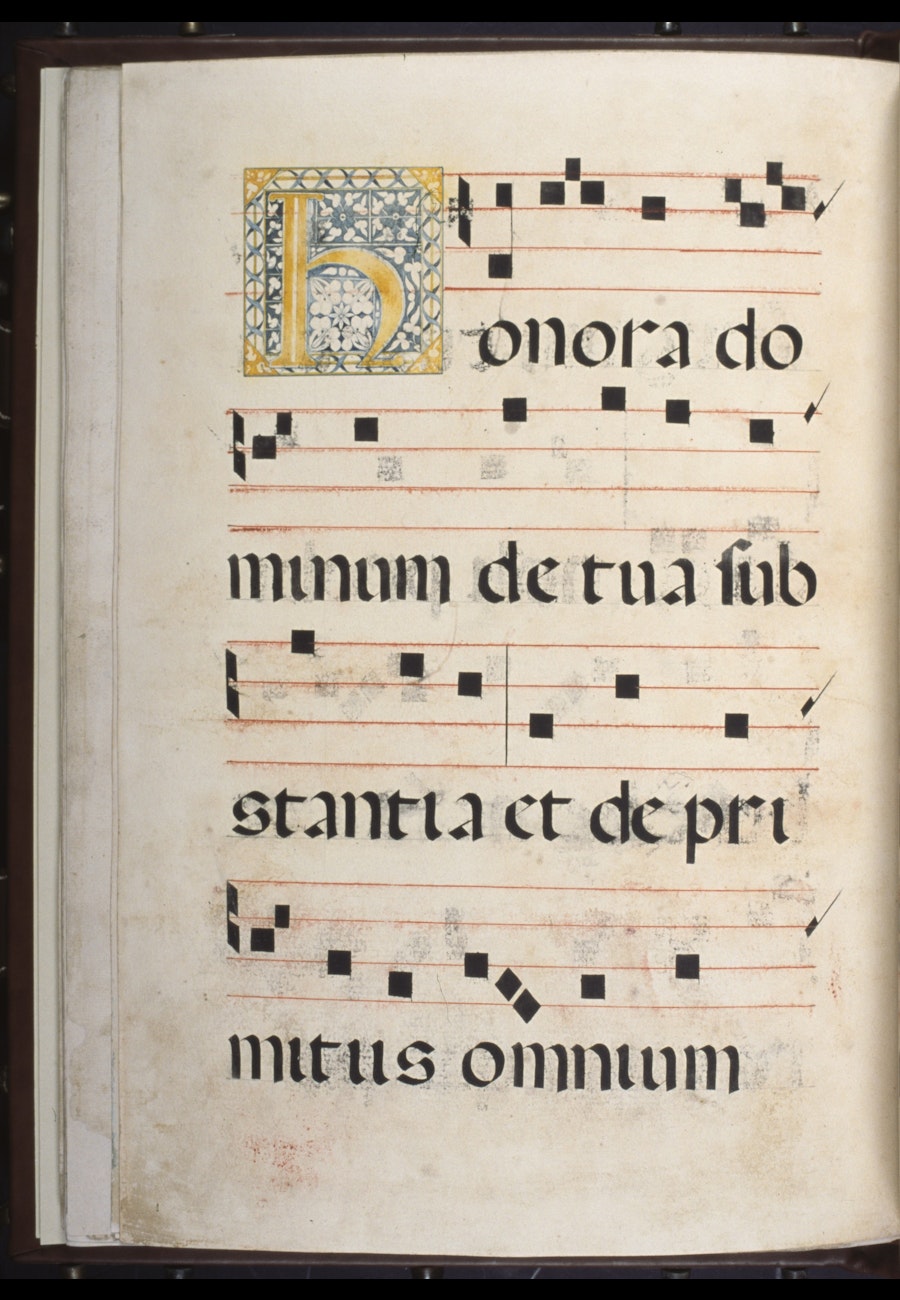 Honora do
minum de tua sub
stantia et de pri
mitus omnium